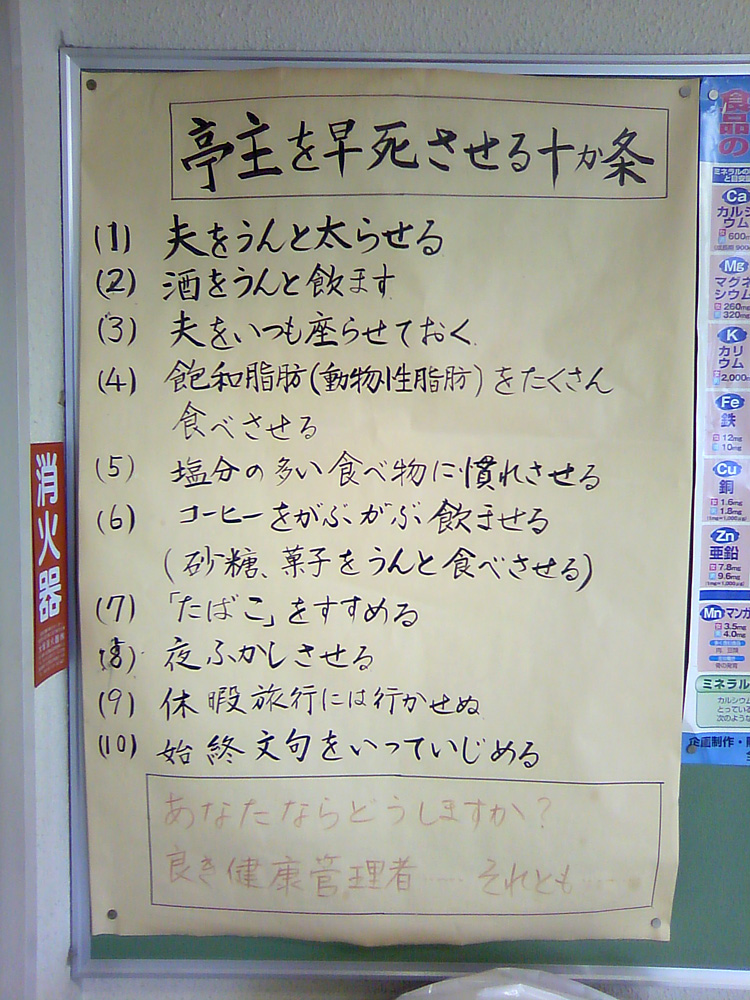 亭主を早死させる十か条
(1) 夫をうんと太らせる
(2) 酒をうんと飲ます
(3) 夫をいつも座らせておく
(4) 飽和脂肪(動物性脂肪)をたくさん
食べさせる
(5) 塩分の多い食べ物に慣れさせる
(6) コーヒーをがぶがぶ飲ませる
(砂糖、菓子をうんと食べさせる)
(7) 「たばこ」をすすめる
(8) 夜ふかしさせる
(9) 休暇旅行には行かせぬ
(10) 始終文句をいっていじめる
あなたならどうしますか?
良き健康管理者……それとも……
消火器
食品の
Ca
カルシ
ウム
600m
Mg
マグネ
シウム
260m
320m
K
カリ
ウム
2,000m
Fe
鉄
12mg
10mg
Cu
銅
1.6mg
1.8mg
(1mg=1,000μg)
Zn
亜鉛
7.8mg
9.6mg
(1mg=1,000μg)
Mn マンガ
3.5mg
4.0mg
ミネラル
カルシウム
とってい
次のような
企画制作・